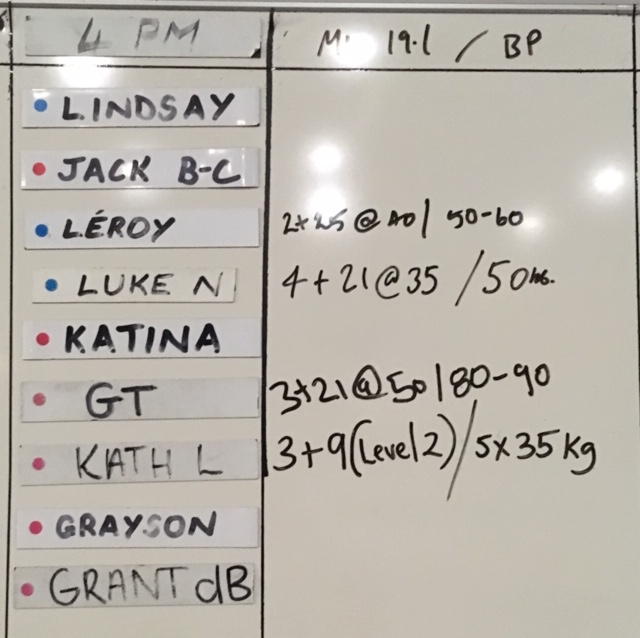 4 PM
19.1 / BP
LINDSAY
JACK B-C
LÉROY @ 40 / 50-60
LUKE N 4 + 21 @ 35 / 50
KATINA
GT 3+21 @ 50 / 80-90
KATH L 3+9 (Level 2) / 5x35 Kg
GRAYSON
GRANT dB